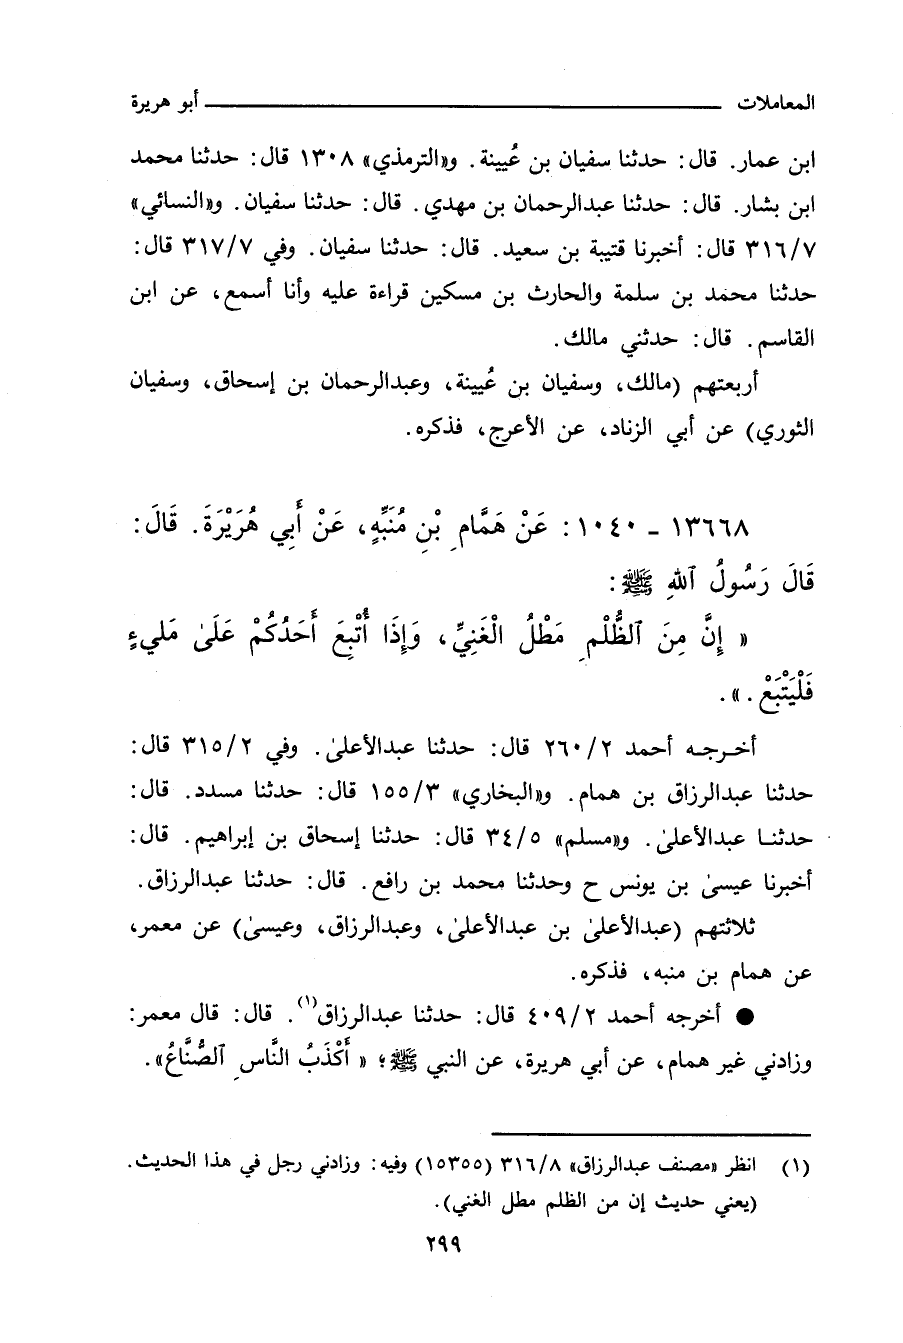 المعاملات أبو هريرة
ابن عمار. قال: حدثنا سفيان بن عُيينة. و«الترمذي» ١٣٠٨ قال: حدثنا محمد
ابن بشار. قال: حدثنا عبدالرحمان بن مهدي. قال: حدثنا سفيان. و«النسائي»
٣١٦/٧ قال: أخبرنا قتيبة بن سعيد. قال: حدثنا سفيان. وفي ٣١٧/٧ قال:
حدثنا محمد بن سلمة والحارث بن مسكين قراءة عليه وأنا أسمع، عن ابن
القاسم. قال: حدثني مالك.
أربعتهم (مالك، وسفيان بن عُيينة، وعبدالرحمان بن إسحاق، وسفيان
الثوري) عن أبي الزناد، عن الأعرج، فذكره.
١٣٦٦٨ - ١٠٤٠: عَنْ هَمَّامِ بْنِ مُنَبِّهٍ، عَنْ أَبِي هُرَيْرَةَ. قَالَ:
قَالَ رَسُولُ ٱللهِ ﷺ:
« إِنَّ مِنَ ٱلظُّلْمِ مَطْلُ الْغَنِيِّ، وَإِذَا أُتْبِعَ أَحَدُكُمْ عَلَىٰ مَلِيءٍ
فَلْيَتْبَعْ. ».
أخـرجـه أحمد ٢٦٠/٢ قال: حدثنا عبدالأعلىٰ. وفي ٣١٥/٢ قال:
حدثنا عبدالرزاق بن همام. و«البخاري» ١٥٥/٣ قال: حدثنا مسدد. قال:
حدثنـا عبدالأعلىٰ. و«مسلم» ٣٤/٥ قال: حدثنا إسحاق بن إبراهيم. قال:
أخبرنا عيسىٰ بن يونس ح وحدثنا محمد بن رافع. قال: حدثنا عبدالرزاق.
ثلاثتهم (عبدالأعلىٰ بن عبدالأعلىٰ، وعبدالرزاق، وعيسىٰ) عن معمر،
عن همام بن منبه، فذكره.
● أخرجه أحمد ٤٠٩/٢ قال: حدثنا عبدالرزاق(١). قال: قال معمر:
وزادني غير همام، عن أبي هريرة، عن النبي ﷺ؛ « أَكْذَبُ النَّاسِ ٱلصُّنَّاعُ».
(١) انظر «مصنف عبدالرزاق» ٣١٦/٨ (١٥٣٥٥) وفيه: وزادني رجل في هذا الحديث.
(يعني حديث إن من الظلم مطل الغني).
٢٩٩